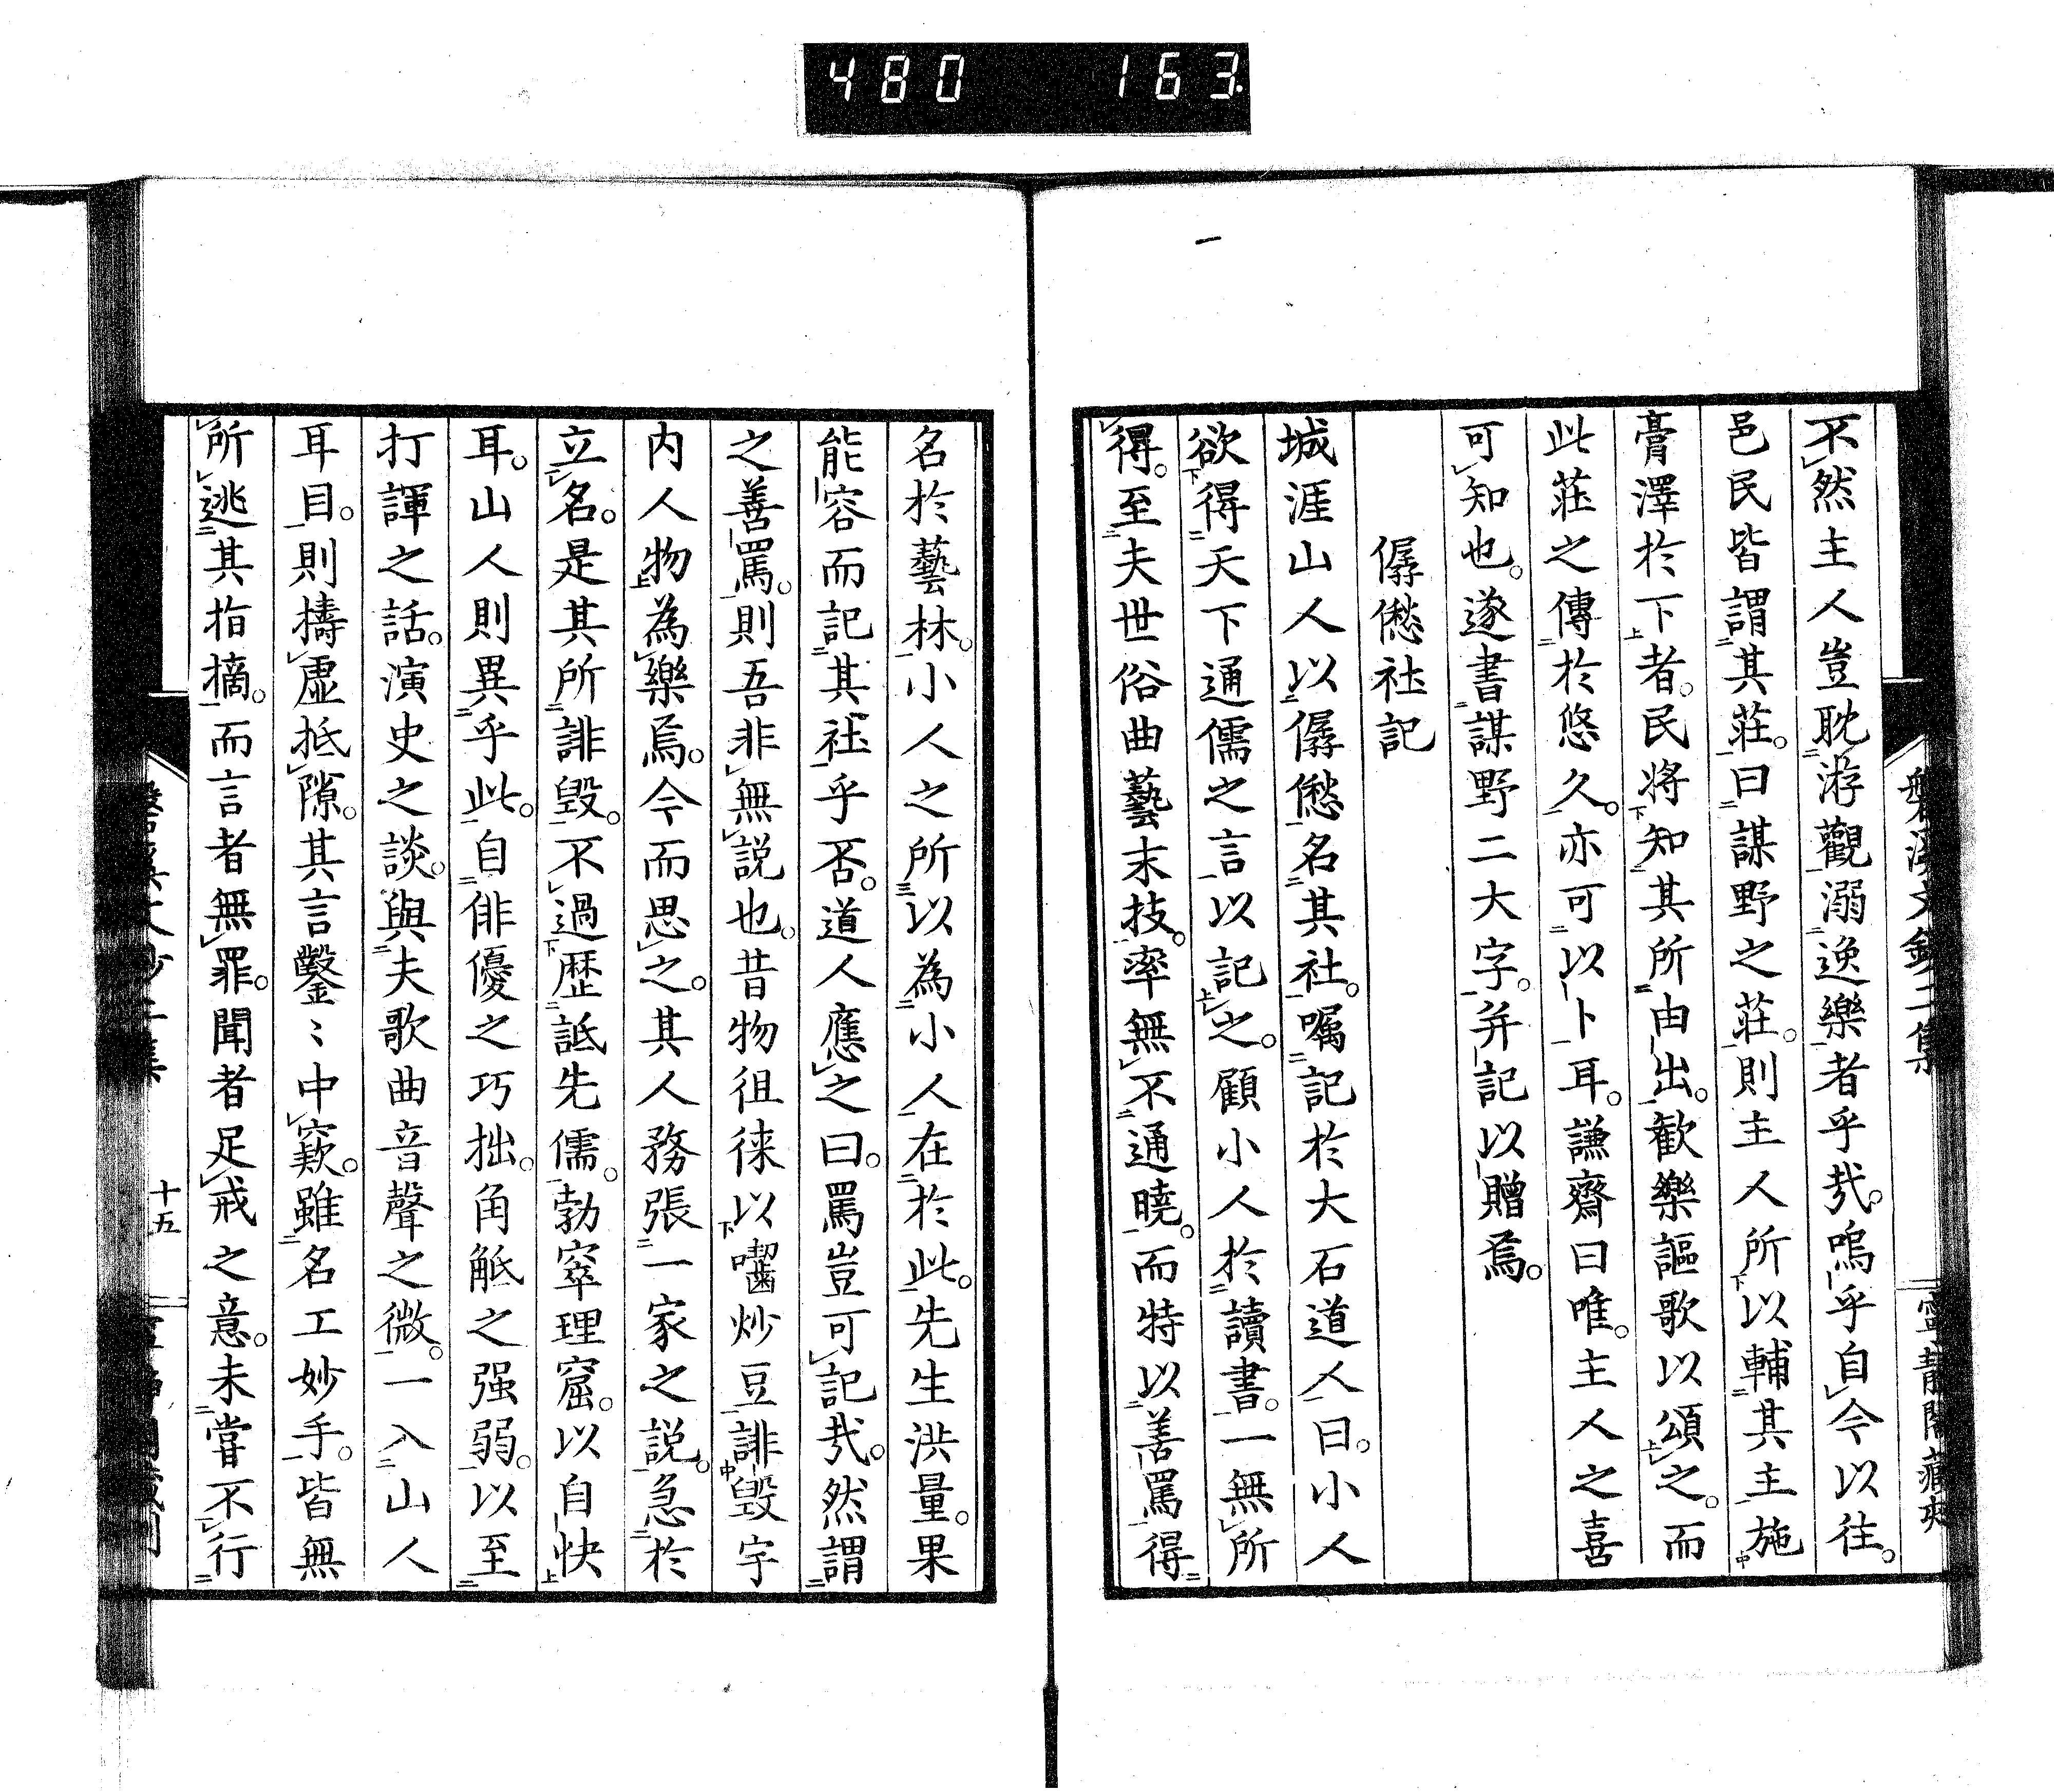 480 163
不然主人豈耽游觀溺逸樂者乎哉。嗚乎自今以往。
邑民皆謂其莊。曰謀野之莊。則主人所以輔其主施
膏澤於下者。民將知其所由出。歡樂謳歌以頌之。而
此莊之傳於悠久。亦可以卜耳。謙齋曰唯。主人之喜
可知也。遂書謀野二大字。并記以贈焉。
僝僽社記
城涯山人以僝僽名其社。囑記於大石道人曰。小人
欲得天下通儒之言以記之。顧小人於讀書。一無所
得。至夫世俗曲藝末技。率無不通曉。而特以善罵得
名於藝林。小人之所以為小人在於此。先生洪量。果
能容而記其社乎否。道人應之曰。罵豈可記哉。然謂
之善罵。則吾非無説也。昔物徂徠以囓炒豆誹毀宇
内人物為樂焉。今而思之。其人務張一家之説。急於
立名。是其所誹毀。不過歴詆先儒。勃窣理窟。以自快
耳。山人則異乎此。自俳優之巧拙。角觝之强弱。以至
打諢之話。演史之談。與夫歌曲音聲之微。一入山人
耳目。則擣虛抵隙。其言鑿〻中窾。雖名工妙手。皆無
所逃其指摘。而言者無罪。聞者足戒之意。未嘗不行
十五